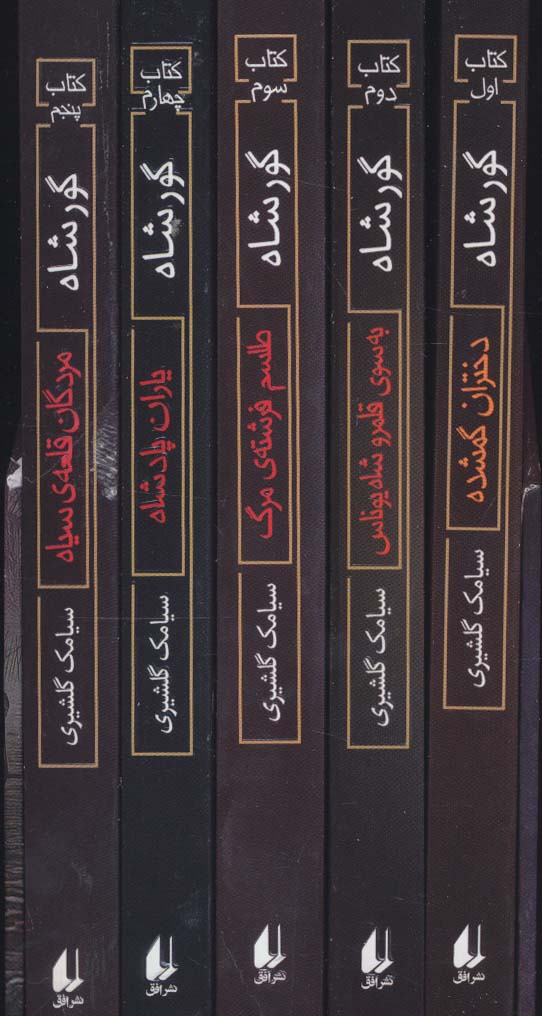 کتاب
اول
گورشاه
دختران گمشده
سیامک گلشیری
نشر افق
کتاب
دوم
گورشاه
به سوی قلمرو شاه یوناس
سیامک گلشیری
نشر افق
کتاب
سوم
گورشاه
طلسم فرشته‌ی مرگ
سیامک گلشیری
نشر افق
کتاب
چهارم
گورشاه
یاران پادشاه
سیامک گلشیری
نشر افق
کتاب
پنجم
گورشاه
مردگان قلعه‌ی سیاه
سیامک گلشیری
نشر افق